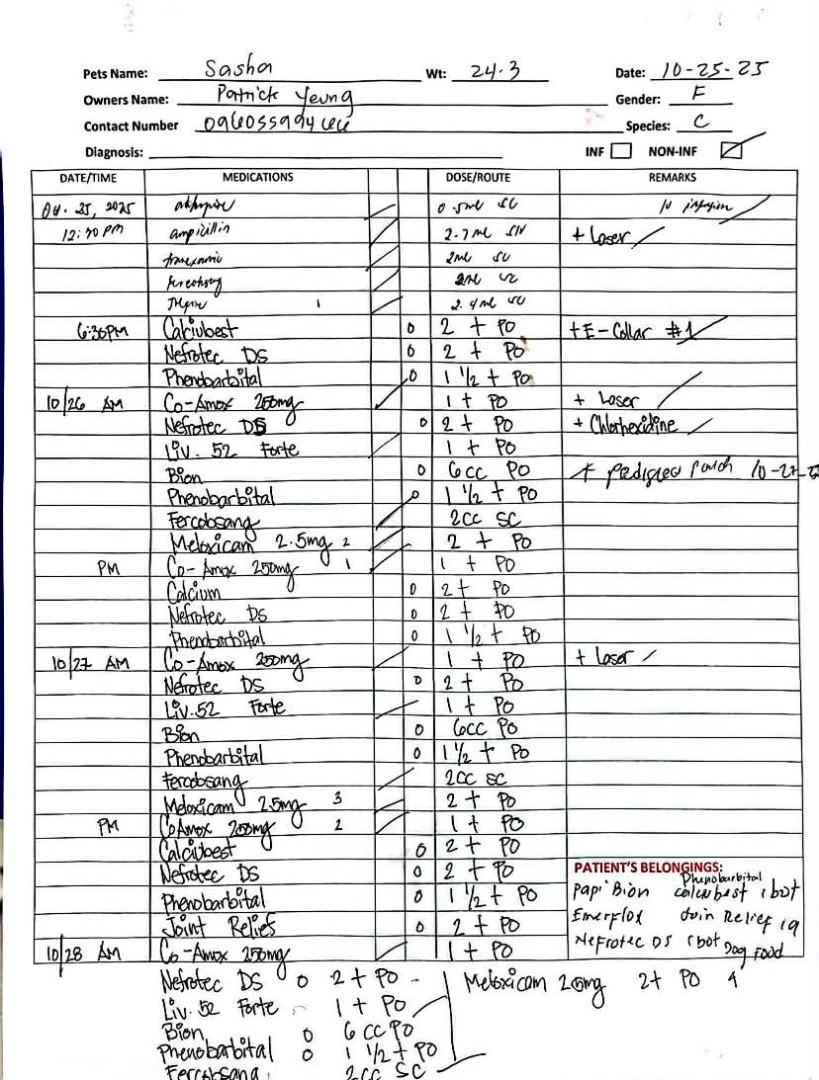 Pets Name: Sasha Wt: 24.3 Date: 10-25-25
Owners Name: Patrick Yeung Gender: F
Contact Number Species: C
Diagnosis: INF NON-INF
DATE/TIME MEDICATIONS DOSE/ROUTE REMARKS
25, 2025 0.5ml SC
12:30 PM ampicillin 2.7ml + Laser
2ml
2ml
2.4ml
6:30PM Calciubest 0 2 + PO + E-Collar #1
Nefrotec DS 0 2 + PO
Phenobarbital 0 1 1/2 + PO
10/26 AM Co-Amox 250mg 1 + PO + Laser
Nefrotec DS 0 2 + PO + Chlorhexidine
Liv. 52 Forte 1 + PO
Bion 0 6cc PO + pedigree pouch 10-27-25
Phenobarbital 0 1 1/2 + PO
Fercobsang 2cc SC
Meloxicam 2.5mg 2 2 + PO
PM Co-Amox 250mg 1 1 + PO
Calcium 0 2 + PO
Nefrotec DS 0 2 + PO
Phenobarbital 0 1 1/2 + PO
10/27 AM Co-Amox 250mg 1 + PO + Laser
Nefrotec DS 0 2 + PO
Liv.52 Forte 1 + PO
Bion 0 6cc PO
Phenobarbital 0 1 1/2 + PO
Fercobsang 2cc SC
Meloxicam 2.5mg 3 2 + PO
PM CoAmox 250mg 2 1 + PO
Calciubest 0 2 + PO
Nefrotec DS 0 2 + PO PATIENT'S BELONGINGS:
Phenobarbital
Phenobarbital 0 1 1/2 + PO Papi Bion calciubest 1 bot
Joint Reliefs 0 2 + PO Emerflox Join Relief 19
10/28 AM Co-Amox 250mg 1 + PO Nefrotec DS 1 bot Dog Food
Nefrotec DS 0 2 + PO Meloxicam 2.5mg 2+ PO 4
Liv. 52 Forte 1 + PO
Bion 0 6 cc PO
Phenobarbital 0 1 1/2 + PO
Fercobsang 2cc SC